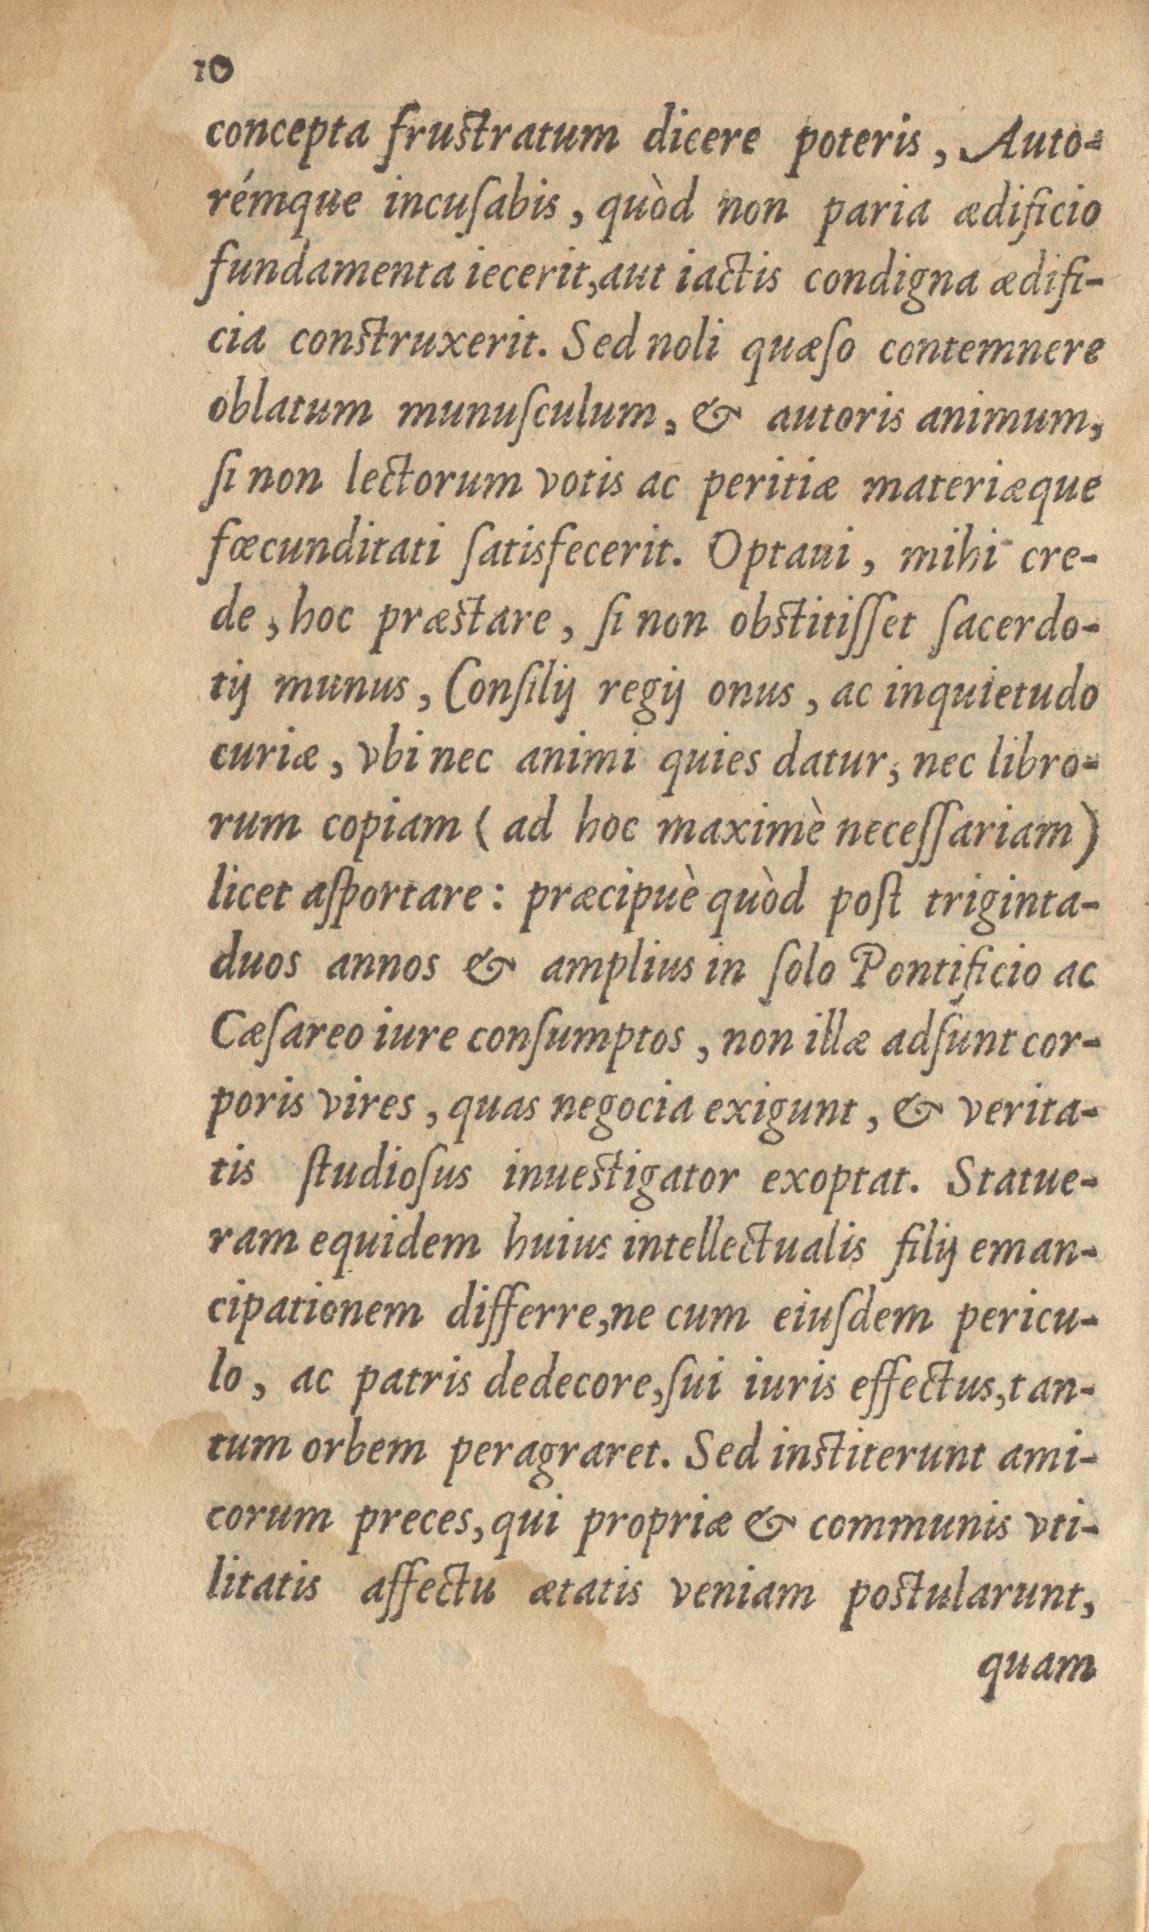 10
concepta frustratum dicere poteris, Auto-
rémque incuſabis, quòd non paria ædificio
fundamenta iecerit, aut iactis condigna ædifi-
cia construxerit. Sed noli quæſo contemnere
oblatum munuſculum, & autoris animum,
ſi non lectorum votis ac peritiæ materiæque
fœcunditati ſatisfecerit. Optaui, mihi cre-
de, hoc præstare, ſi non obstitiſſet ſacerdo-
tij munus, Conſilij regij onus, ac inquietudo
curiæ, vbi nec animi quies datur, nec libro-
rum copiam (ad hoc maximè neceſſariam)
licet aſportare: præcipuè quòd poſt triginta-
duos annos & amplius in ſolo Pontificio ac
Cæſareo iure conſumptos, non illæ adſunt cor-
poris vires, quas negocia exigunt, & verita-
tis ſtudioſus inuestigator exoptat. Statue-
ram equidem huius intellectualis filij eman-
cipationem differre, ne cum eiuſdem pericu-
lo, ac patris dedecore, ſui iuris effectus, tan-
tum orbem peragraret. Sed institerunt ami-
corum preces, qui propriæ & communis vti-
litatis affectu ætatis veniam postularunt,
quam